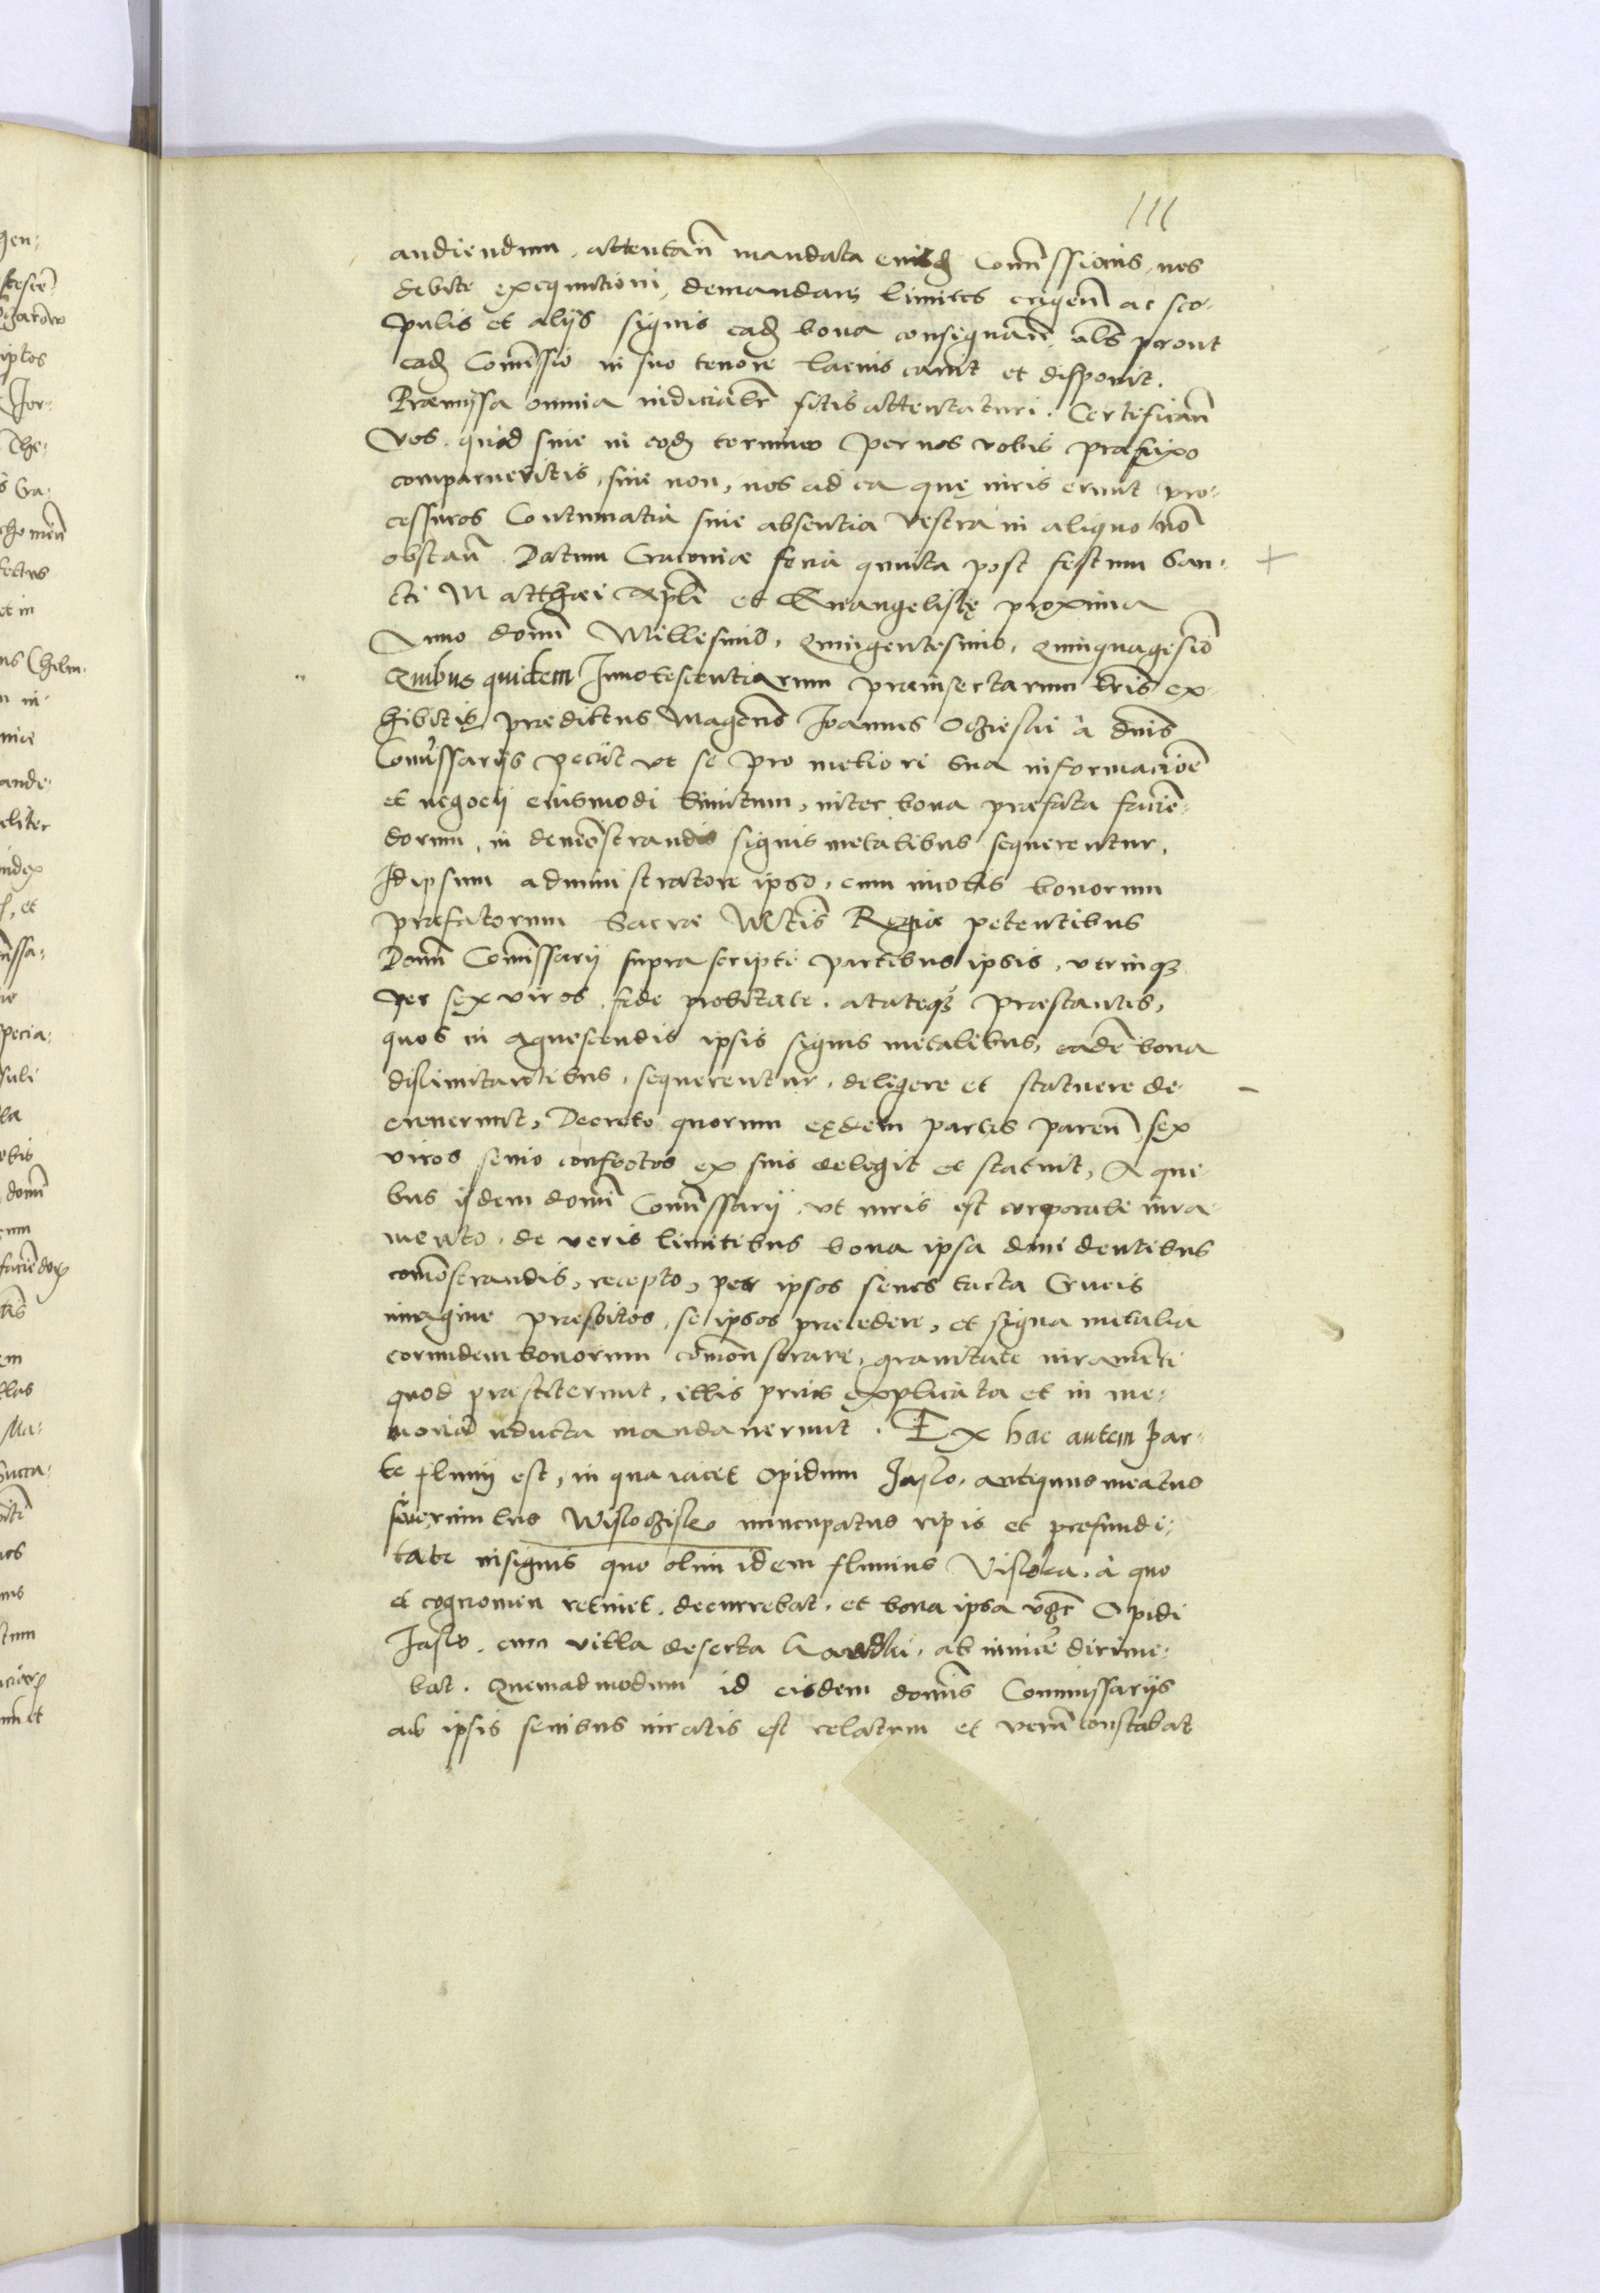 111
audiendum, attentan̄ mandata eiusdē Com̄issionis, nos
debite exequutioni demandare, limites erigen̄ ac sco-
pulis et alijs signis eadē bona consignan̄, als prout
eadē Com̄issio in suo tenore latius canit et disponit.
Præmissa omnia iudicialr̄ sitis attentaturi. Certifican̄
Vos, quòd siue in eodē termino per nos vobis præfixo
comparueritis, siue non, nos ad ea quę iuris erunt pro-
cessuros Contumatia siue absentia vestra in aliquo nō
obstan̄. Datum Cracouiæ feria quinta post festum San-
cti Matthæi Apl̄i et Euangelistę proxima
Anno domī Millesimo, Quingentesimo, Quinquagesimō
Quibus quidem Innotescentiarum præinsertarum lr̄is ex-
hibitis, præditus Magcūs Joannes Oczieski à dn̄is
Com̄issarijs petijt vt se pro meliori sua informacioē
et negocij eiusmodi limitum, inter bona præfata faciē-
dorum, in demōstrandis signis metalibus sequerentur.
Idipsum administratore ipso, cum incolis bonorum
præfatorum Sacræ Mtis Regiæ petentibus
Domī Com̄issarij suprascripti partibus ipsis, vtrinq;
per sex viros, fide probitate, ætateq; præstantes,
quos in agnoscendis ipsis signis metalibus, eadē bona
dislimitantibus, sequerentur, deligere et statuere de-
creuerunt, Decreto quorum eędem partes paren̄ sex
viros senio confectos ex suis delegit et statuit, A qui-
bus ijdem domī Com̄issarij, vt iuris est corporali iura-
mento, de veris limitibus bona ipsa diuidentibus
comōstrandis, recepto, per ipsos senes tacta Crucis
imagine præstitos, se ipsos præcedere, et signa metalia
eorundem bonorum cōmonstrare, grauitate iuramenti
quod præstiterunt, illis prius explicata et in me-
moriā reducta mandauerunt. Ex hac autem par-
te fluuij est, in qua iacet opidum Jaslo, antiquus meatus
Wisloczisko nuncupatus ripis et profundi-
tate insignis quo olim idem fluuius Visloka, à quo
et cognomen retinet, decurrebat, et bona ipsa vʒ Opidi
Jaslo, cum villa deserta ab inuicē dirime-
bat. Quemadmodum id eisdem domīs Commissarijs
ab ipsis senibus iuratis est relatum et verè constabat